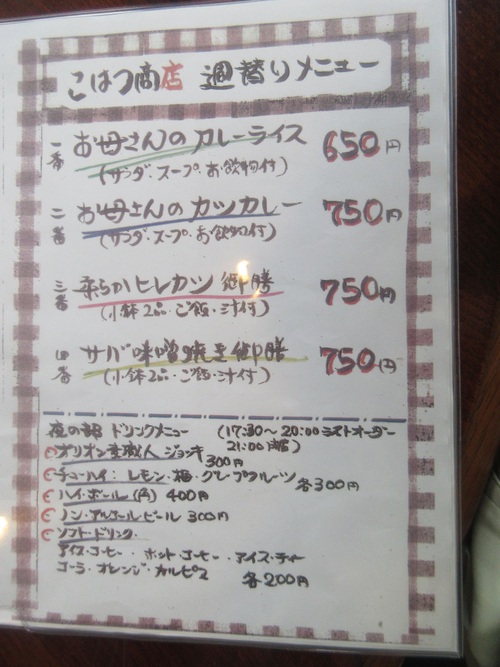 こはつ商店 週替りメニュー
一番 お母さんのカレーライス 650円
(サラダ・スープ・お飲物付)
二番 お母さんのカツカレー 750円
(サラダ・スープ・お飲物付)
三番 柔らかヒレカツ御膳 750円
(小鉢2品・ご飯・汁付)
四番 サバ味噌焼き御膳 750円
(小鉢2品・ご飯・汁付)
夜の部 ドリンクメニュー (17:30〜20:00ラストオーダー
21:00閉店)
オリオン麦職人 ジョッキ
300円
チューハイ: レモン・梅・グレープフルーツ
各300円
ハイボール (角) 400円
ノンアルコールビール 300円
ソフトドリンク
アイスコーヒー・ホットコーヒー・アイスティー
コーラ・オレンジ・カルピス 各200円